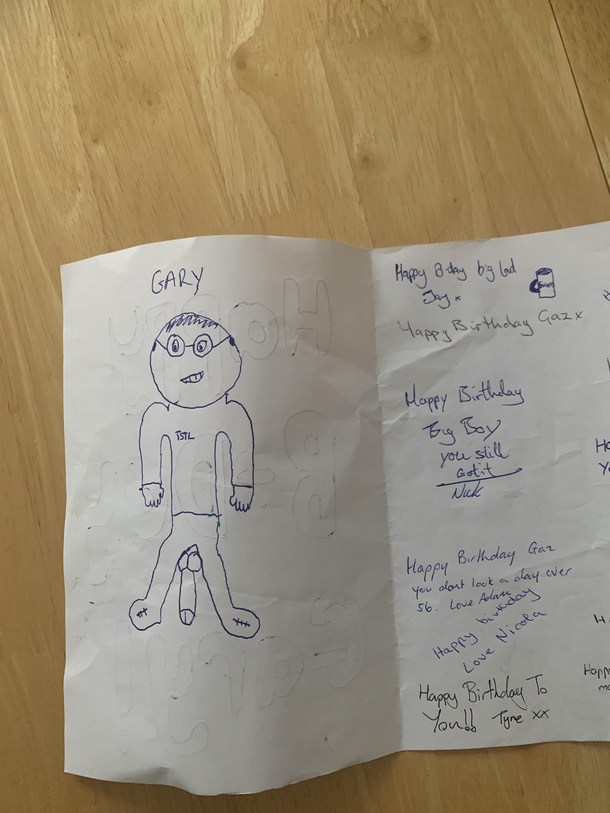 GARY
TSTL
Happy B-day big lad
Jay x
Happy Birthday Gaz x
Happy Birthday
Big Boy
you still
Got it
Nick
Happy Birthday Gaz
you dont look a day over
56. Love Adam
Happy birthday
Love Nicola
Happy Birthday To
You!! Tyne xx